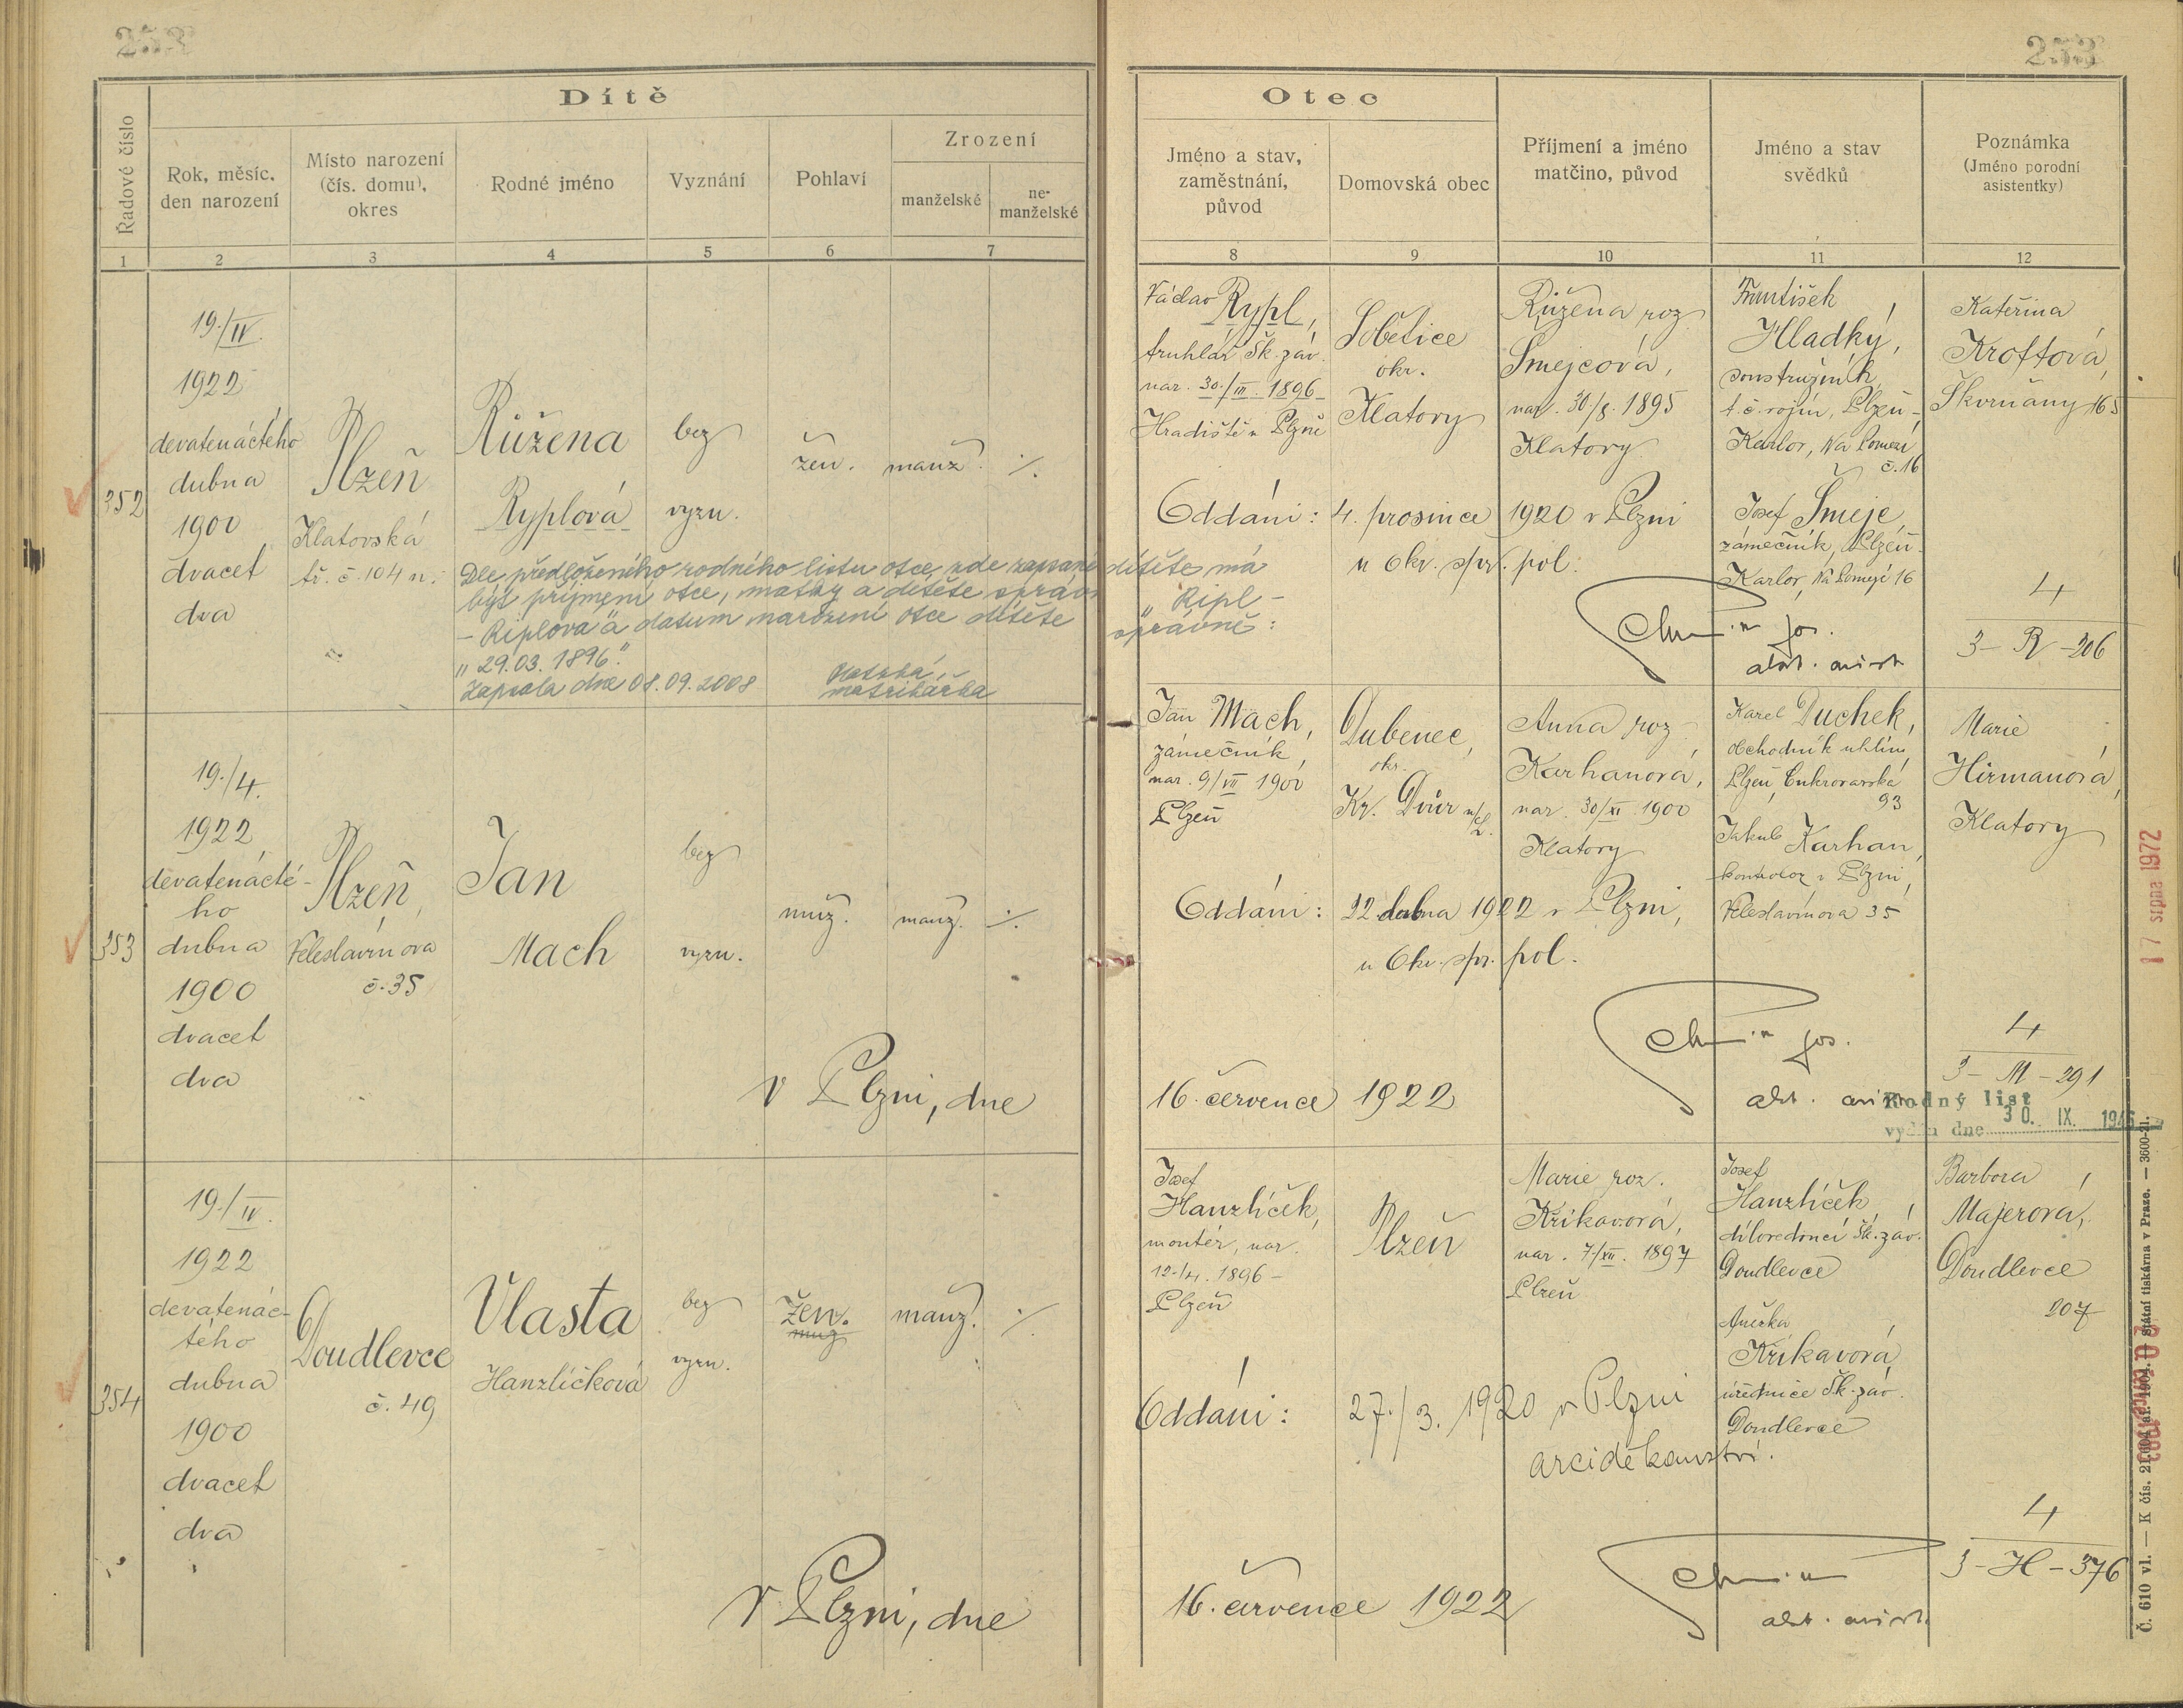 253
253
Dítě
Otec
Řadové číslo
Rok, měsíc,
den narození
Místo narození
(čís. domu),
okres
Rodné jméno
Vyznání
Pohlaví
Zrození
manželské
ne-
manželské
Jméno a stav,
zaměstnání,
původ
Domovská obec
Příjmení a jméno
matčino, původ
Jméno a stav
svědků
Poznámka
(Jméno porodní
asistentky)
1 2 3 4 5 6 7 8 9 10 11 12
352
19./IV.
1922
devatenáctého
dubna
1900
dvacet
dva
Plzeň
Klatovská
tř. č. 104 n.
Růžena
Ryplová
bez
vyzn.
žen.
manž.
./.
Dle předloženého rodného listu otce zde zapsané dítěte má
být příjmení otce, matky a dítěte správně „Ripl -
- Riplová" a datum narození otce dítěte správně:
„29.03.1896".
Zapsala dne 08.09.2008
matrikářka
Václav Rypl,
truhlář Šk. záv.
nar. 30./III. 1896 -
Hradiště u Plzně
Sobětice
okr.
Klatovy
Růžena roz.
Smejcová,
nar. 30/8. 1895
Klatovy
František
Hladký,
soustružník,
Plzeň -
Karlov, Na Pomezí
č. 16
Josef Šmejc,
zámečník, Plzeň -
Karlov, Na Pomezí 16
Kateřina
Kroftová,
Škvrňany 165
Oddáni: 4. prosince 1920 v Plzni
u Okr. spr. pol.
4
3 - R - 206
353
19./4.
1922
devatenácté-
ho
dubna
1900
dvacet
dva
Plzeň,
Veleslavínova
č. 35
Jan
Mach
bez
vyzn.
muž.
manž.
./.
Jan Mach,
zámečník,
nar. 9/VII 1900
Plzeň
Dubenec,
okr.
Kr. Dvůr n/L.
Anna roz.
Karhanová,
nar. 30/XI. 1900
Klatovy
Karel Duchek,
obchodník uhlím,
Plzeň, Cukrovarská
93
Jakub Karhan,
kontrolor v Plzni,
Veleslavínova 35
Marie
Hirmanová,
Klatovy
Oddáni: 22 dubna 1922 v Plzni,
u Okr. spr. pol.
V Plzni, dne 16. července 1922
4
3 - M - 291
Rodný list
vydán dne 30. IX.
17 srpna 1972
354
19./IV.
1922
devatenác-
tého
dubna
1900
dvacet
dva
Doudlevce
č. 49
Vlasta
Hanzlíčková
bez
vyzn.
žen.
muž
manž.
./.
Josef
Hanzlíček,
montér, nar.
12./4. 1896 -
Plzeň
Plzeň
Marie roz.
Křikavová,
nar. 7./XII. 1897
Plzeň
Josef
Hanzlíček,
dílovedoucí Šk. záv.
Doudlevce
Anežka
Křikavová,
úřednice Šk. záv.
Doudlevce
Barbora
Majerová,
Doudlevce
207
Oddáni: 27./3. 1920 v Plzni
arciděkanství.
V Plzni, dne 16. července 1922
4
3 - H - 376
Státní tiskárna v Praze. — 3600-21.
Č. 610 vl. — K čís.